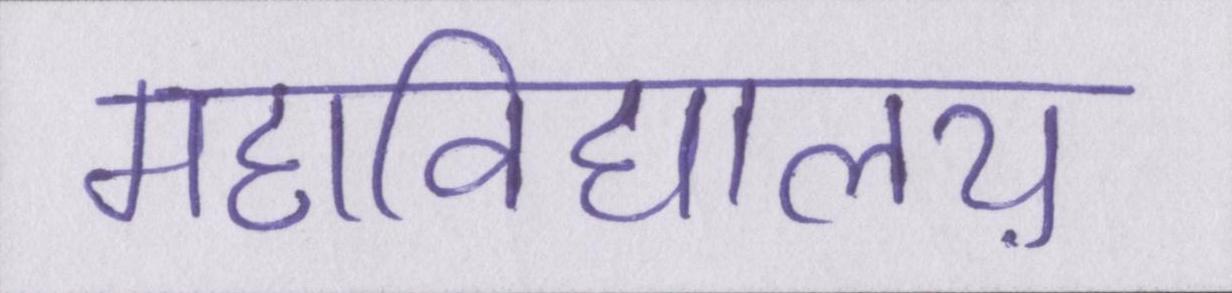 महाविद्यालय़